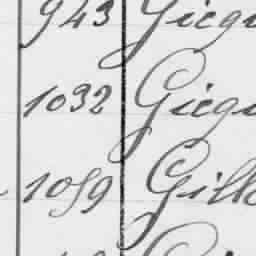 943 Giegu
1032 Giegu
1059 Gill